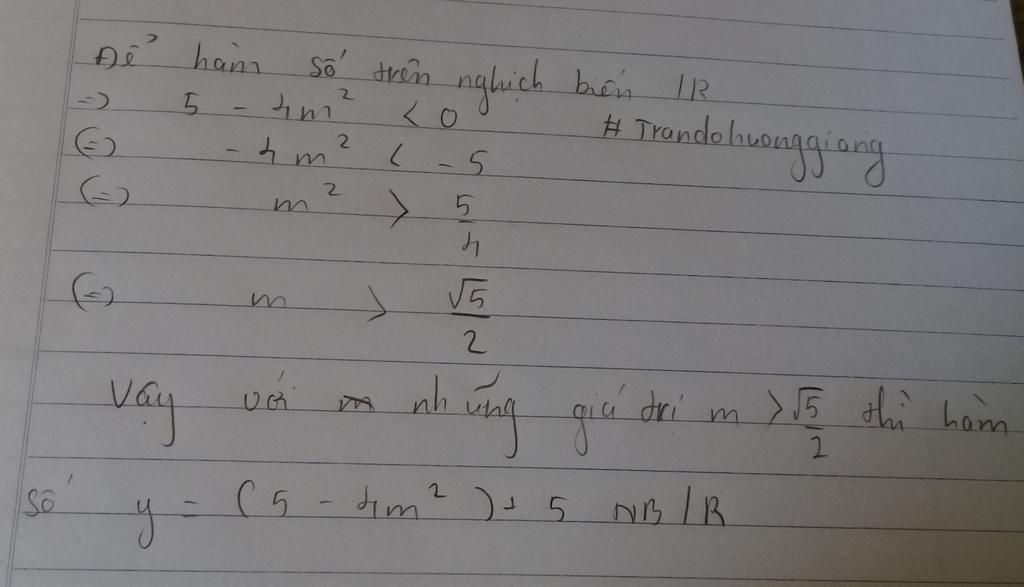 Để hàm số trên nghịch biến /R
=> 5 - 4m² < 0 # Trandohuonggiang
(=) - 4m² < - 5
(=) m² > 5/4
(=) m > √5/2
Vậy với m những giá trị m > √5/2 thì hàm
số y = (5 - 4m²) + 5 NB /R